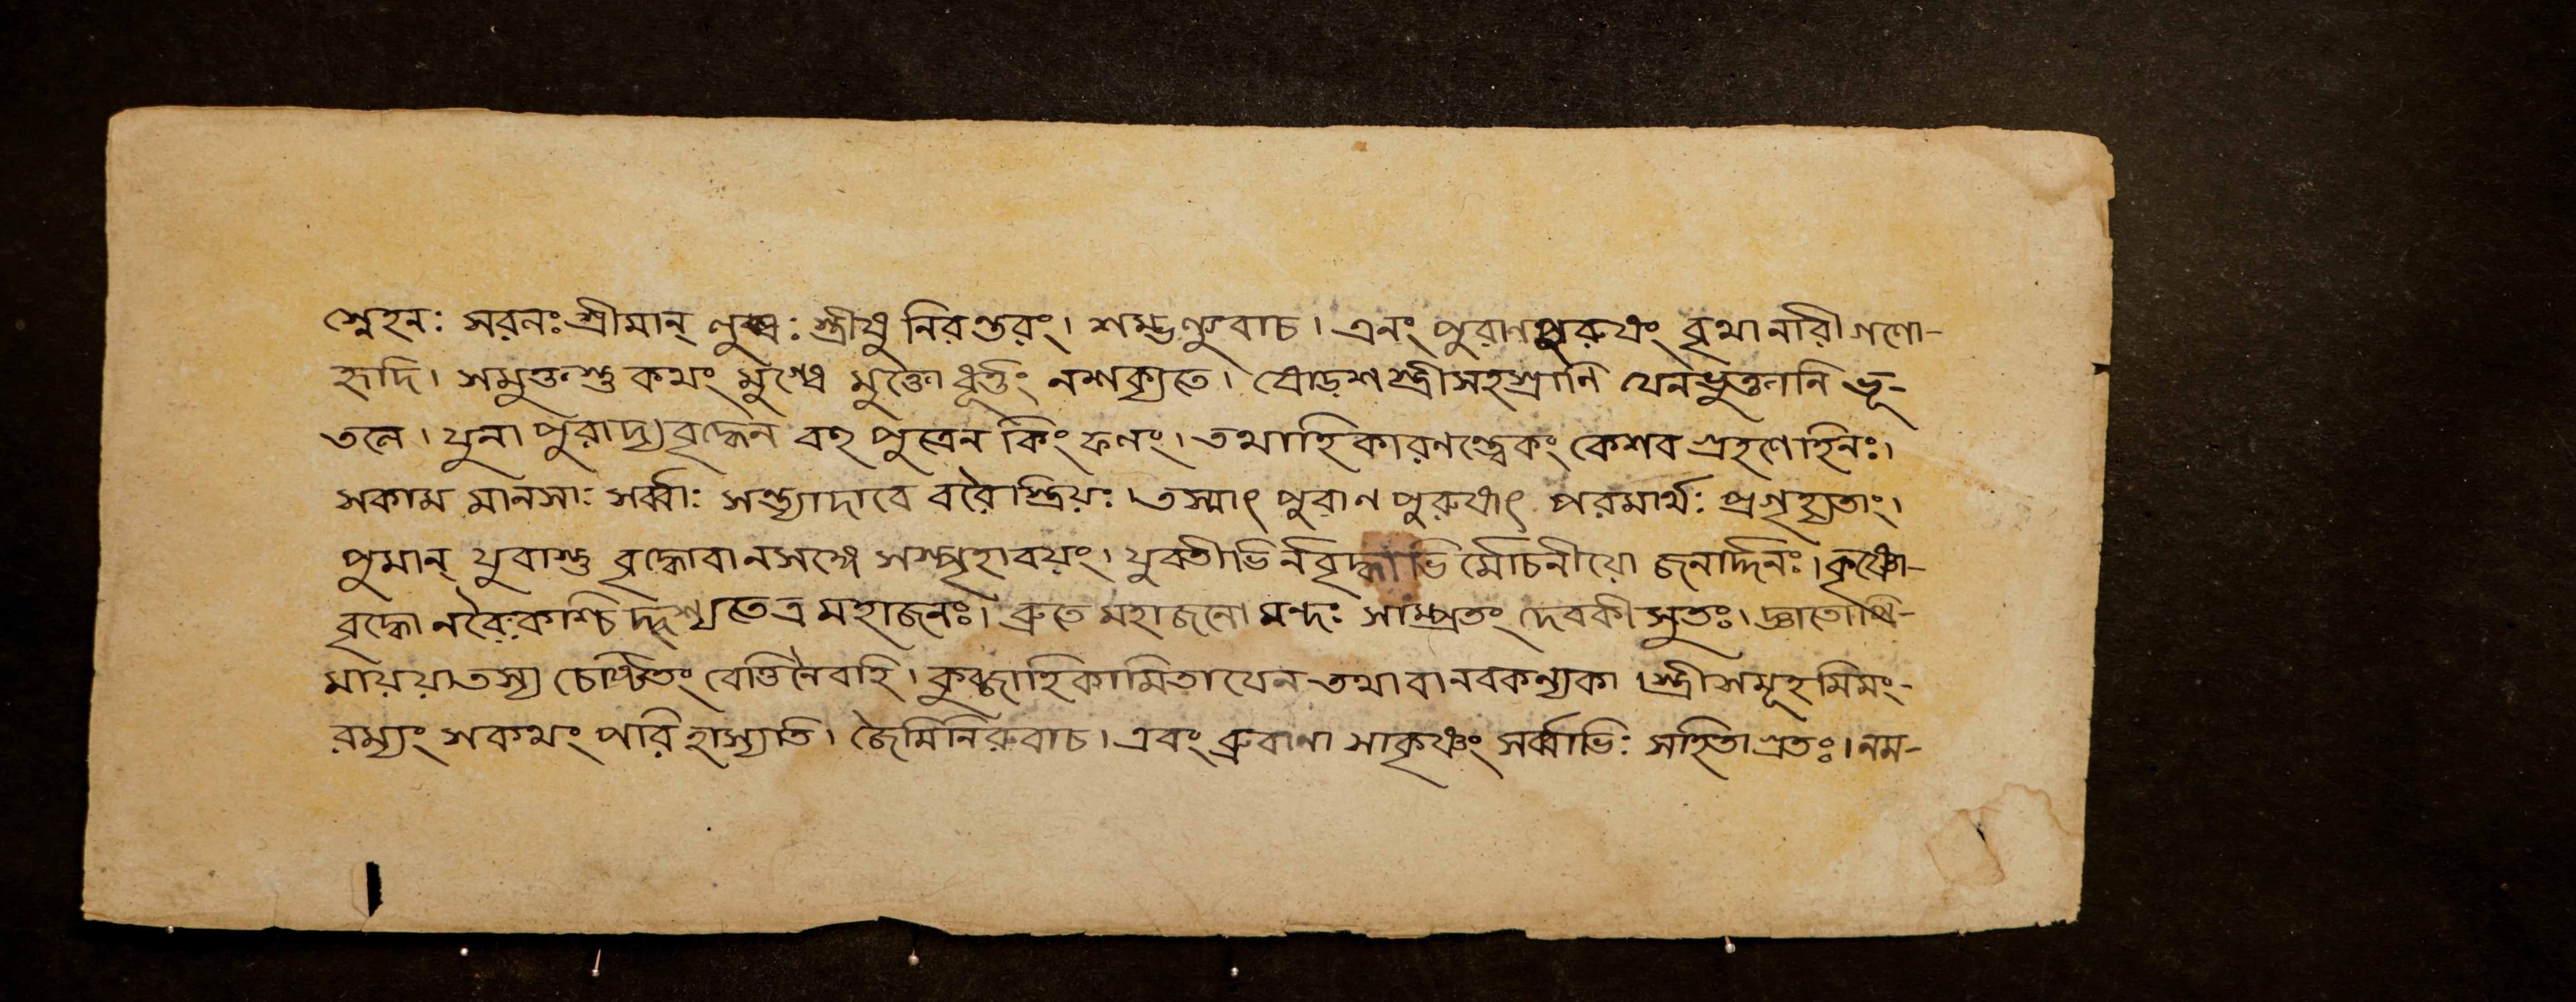 স্নেহন: সরনঃ শ্রীমান্ লুব্ধ: স্ত্রীষু নিরন্তরং। শম্ভল্যুবাচ। এনং পুরাণপুরুষং বৃথা নারী গণো-
হৃদি। সমুক্তস্তু কথং মুগ্ধে মুক্তো ধূর্ত্তং নশক্যতে। ষোড়শ স্ত্রীসহস্রানি যেনভুক্তানি ভূ-
তলে। যুনা পুরাদ্য বৃদ্ধেন বহু পুত্রেন কিং ফলং। তথাহিকারণন্ত্বেকং কেশব গ্রহণেহিনঃ।
সকাম মানসা: সর্ব্বা: সন্ত্যাদাবে ববৈস্ত্রিয়ঃ। তস্মাৎ পুরাণ পুরুষাৎ পরমার্থ: প্রগৃহ্যতাং।
পুমান্ যুবাস্তু বৃদ্ধোবানসঙ্গে সস্পৃহাবয়ং। যুবতীভির্নবৃদ্ধাভি র্মোচনীয়ো জনার্দ্দনঃ। কৃষ্ণো-
বৃদ্ধো নবৈকশ্চি দ্দৃশ্যতেত্র মহাজনঃ। ব্রুতে মহাজনো মন্দ: সাম্প্রতং দেবকী সুতঃ। জ্ঞাতোথি-
মায়য়াতস্য চেষ্টিতং বেত্তিনৈবাহি। কুব্জাহিকামিতাযেন তথা বানবকন্যকা। স্ত্রীসমূহ মিমং-
রম্যং সকথং পরি হাস্যতি। জৈমিনিরুবাচ। এবং ব্রুবাণা সাকৃষ্ণং সর্ব্বাভি: সহিতা গ্রতঃ। নন-